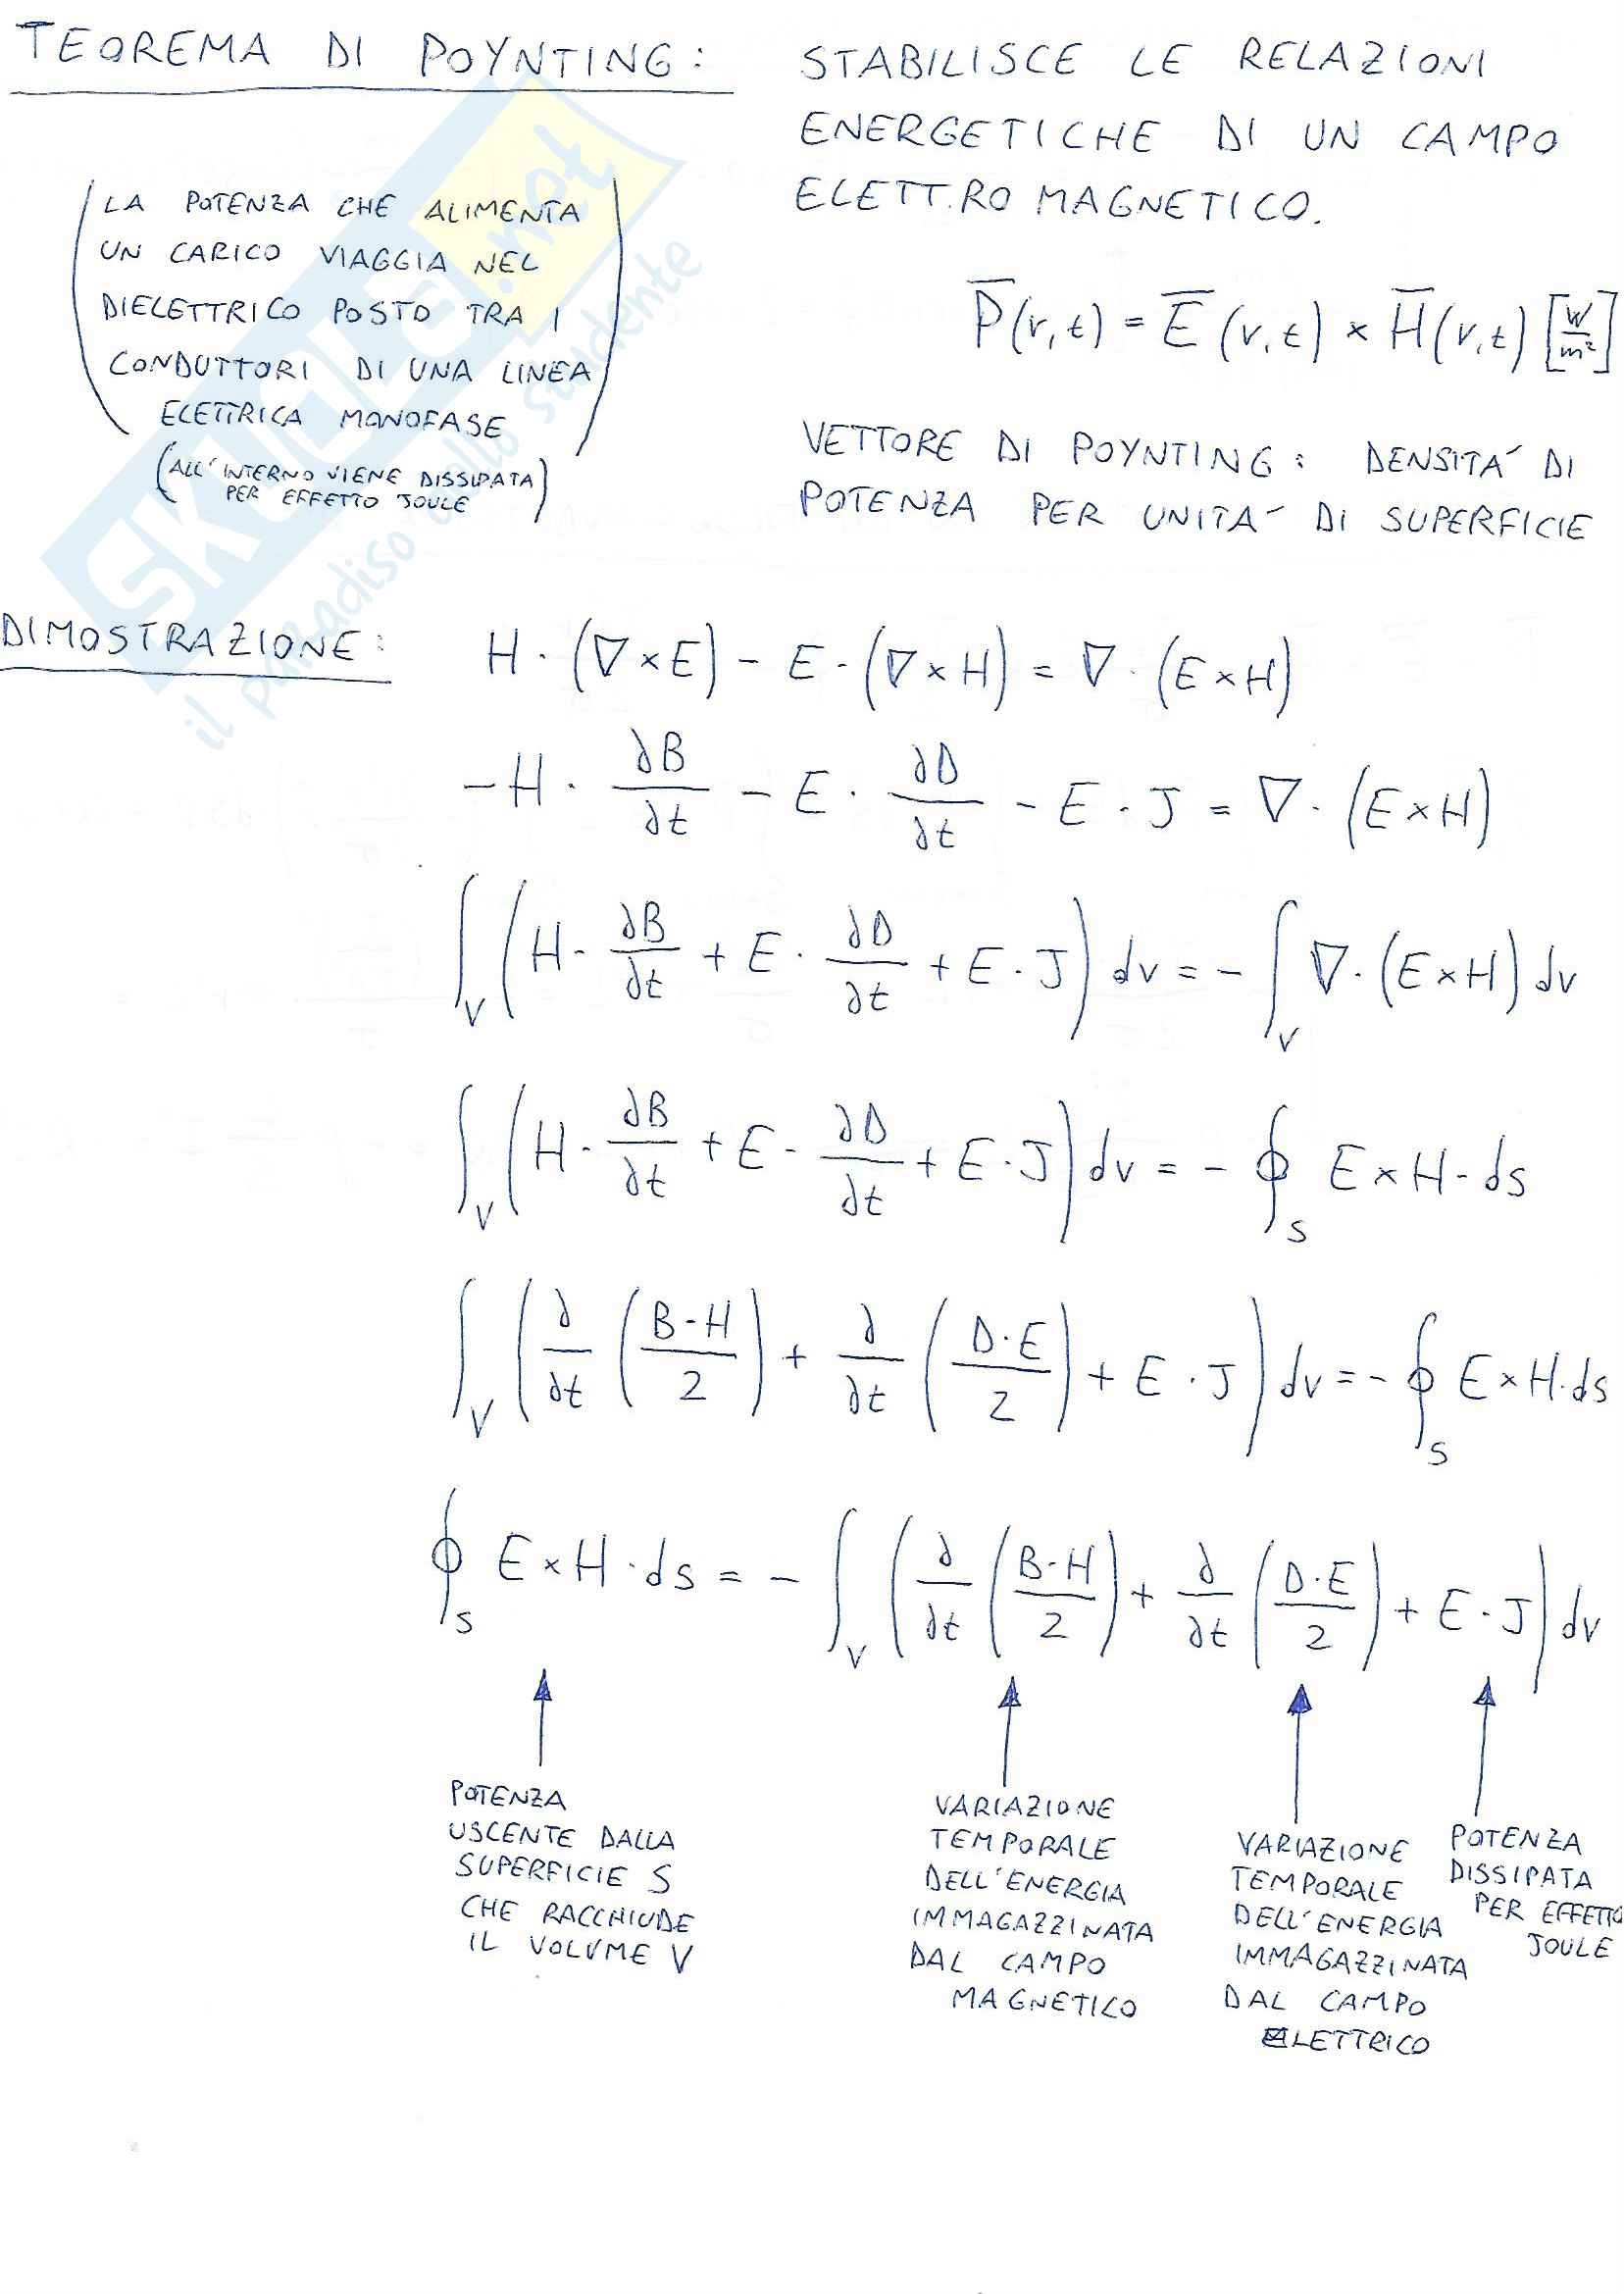 TEOREMA DI POYNTING:
STABILISCE LE RELAZIONI
ENERGETICHE DI UN CAMPO
ELETTROMAGNETICO.
(LA POTENZA CHE ALIMENTA
UN CARICO VIAGGIA NEL
DIELETTRICO POSTO TRA I
CONDUTTORI DI UNA LINEA
ELETTRICA MONOFASE)
(ALL'INTERNO VIENE DISSIPATA
PER EFFETTO JOULE)
P̅(r,t) = E̅(r,t) × H̅(r,t) [W/m²]
VETTORE DI POYNTING: DENSITA' DI
POTENZA PER UNITA' DI SUPERFICIE
SKUOLA.net
il paradiso dello studente
DIMOSTRAZIONE:
H · (∇×E) − E · (∇×H) = ∇ · (E×H)
−H · ∂B/∂t − E · ∂D/∂t − E · J = ∇ · (E×H)
∫_V (H · ∂B/∂t + E · ∂D/∂t + E · J) dv = − ∫_V ∇ · (E×H) dv
∫_V (H · ∂B/∂t + E · ∂D/∂t + E · J) dv = − ∮_S E×H · ds
∫_V (∂/∂t (B·H/2) + ∂/∂t (D·E/2) + E · J) dv = − ∮_S E×H · ds
∮_S E×H · ds = − ∫_V (∂/∂t (B·H/2) + ∂/∂t (D·E/2) + E · J) dv
POTENZA
USCENTE DALLA
SUPERFICIE S
CHE RACCHIUDE
IL VOLUME V
VARIAZIONE
TEMPORALE
DELL'ENERGIA
IMMAGAZZINATA
DAL CAMPO
MAGNETICO
VARIAZIONE
TEMPORALE
DELL'ENERGIA
IMMAGAZZINATA
DAL CAMPO
ELETTRICO
POTENZA
DISSIPATA
PER EFFETTO
JOULE